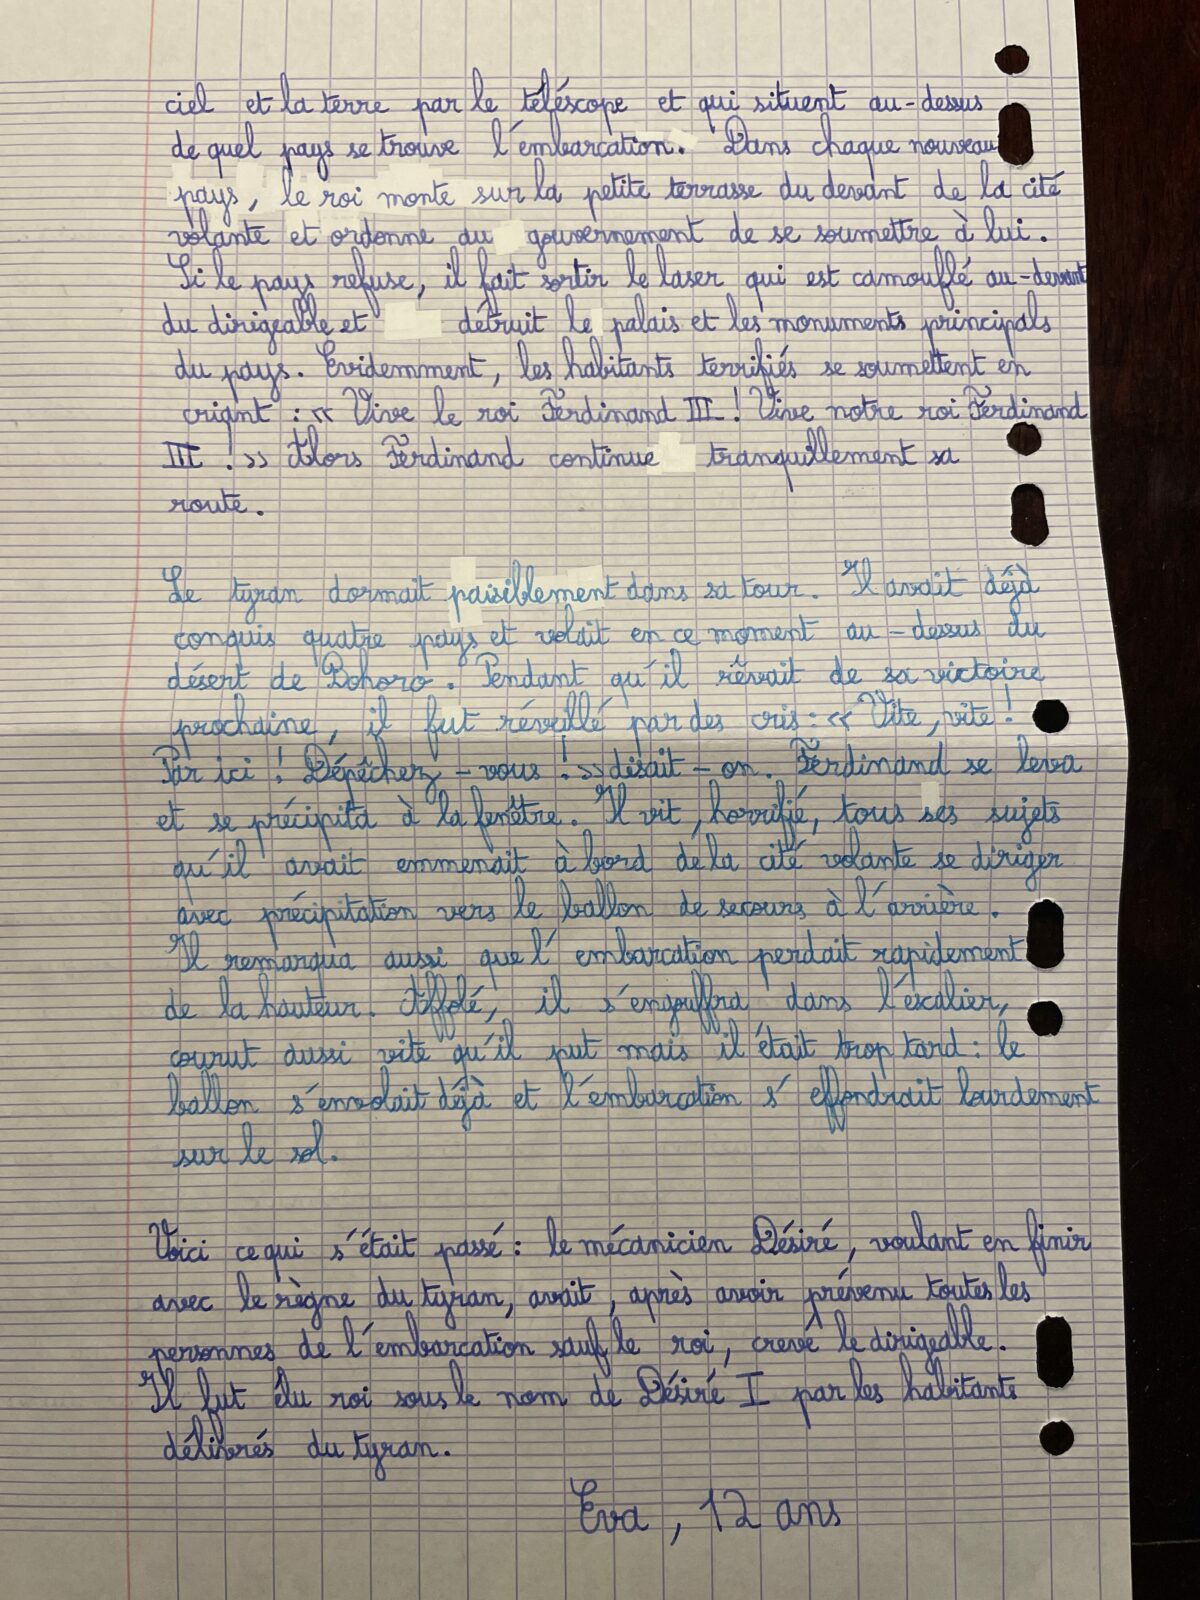 ciel et la terre par le téléscope et qui situent au-dessus
de quel pays se trouve l'embarcation. Dans chaque nouveau
pays, le roi monte sur la petite terrasse du devant de la cité
volante et ordonne au gouvernement de se soumettre à lui.
Si le pays refuse, il fait sortir le laser qui est camouflé au-devant
du dirigeable et détruit le palais et les monuments principals
du pays. Evidemment, les habitants terrifiés se soumettent en
criant : « Vive le roi Ferdinand III ! Vive notre roi Ferdinand
III ! » Alors Ferdinand continue tranquillement sa
route.
Le tyran dormait paisiblement dans sa tour. Il avait déjà
conquis quatre pays et volait en ce moment au-dessus du
désert de Bohoro. Pendant qu'il rêvait de sa victoire
prochaine, il fut réveillé par des cris : « Vite, vite !
Par ici ! Dépêchez-vous ! » disait-on. Ferdinand se leva
et se précipita à la fenêtre. Il vit, horrifié, tous ses sujets
qu'il avait emmenait à bord de la cité volante se diriger
avec précipitation vers le ballon de secours à l'arrière.
Il remarqua aussi que l'embarcation perdait rapidement
de la hauteur. Affolé, il s'engouffra dans l'escalier,
courut aussi vite qu'il put mais il était trop tard : le
ballon s'envolait déjà et l'embarcation s'effondrait lourdement
sur le sol.
Voici ce qui s'était passé : le mécanicien Désiré, voulant en finir
avec le règne du tyran, avait, après avoir prévenu toutes les
personnes de l'embarcation sauf le roi, crevé le dirigeable.
Il fut élu roi sous le nom de Désiré I par les habitants
délivrés du tyran.
Eva, 12 ans